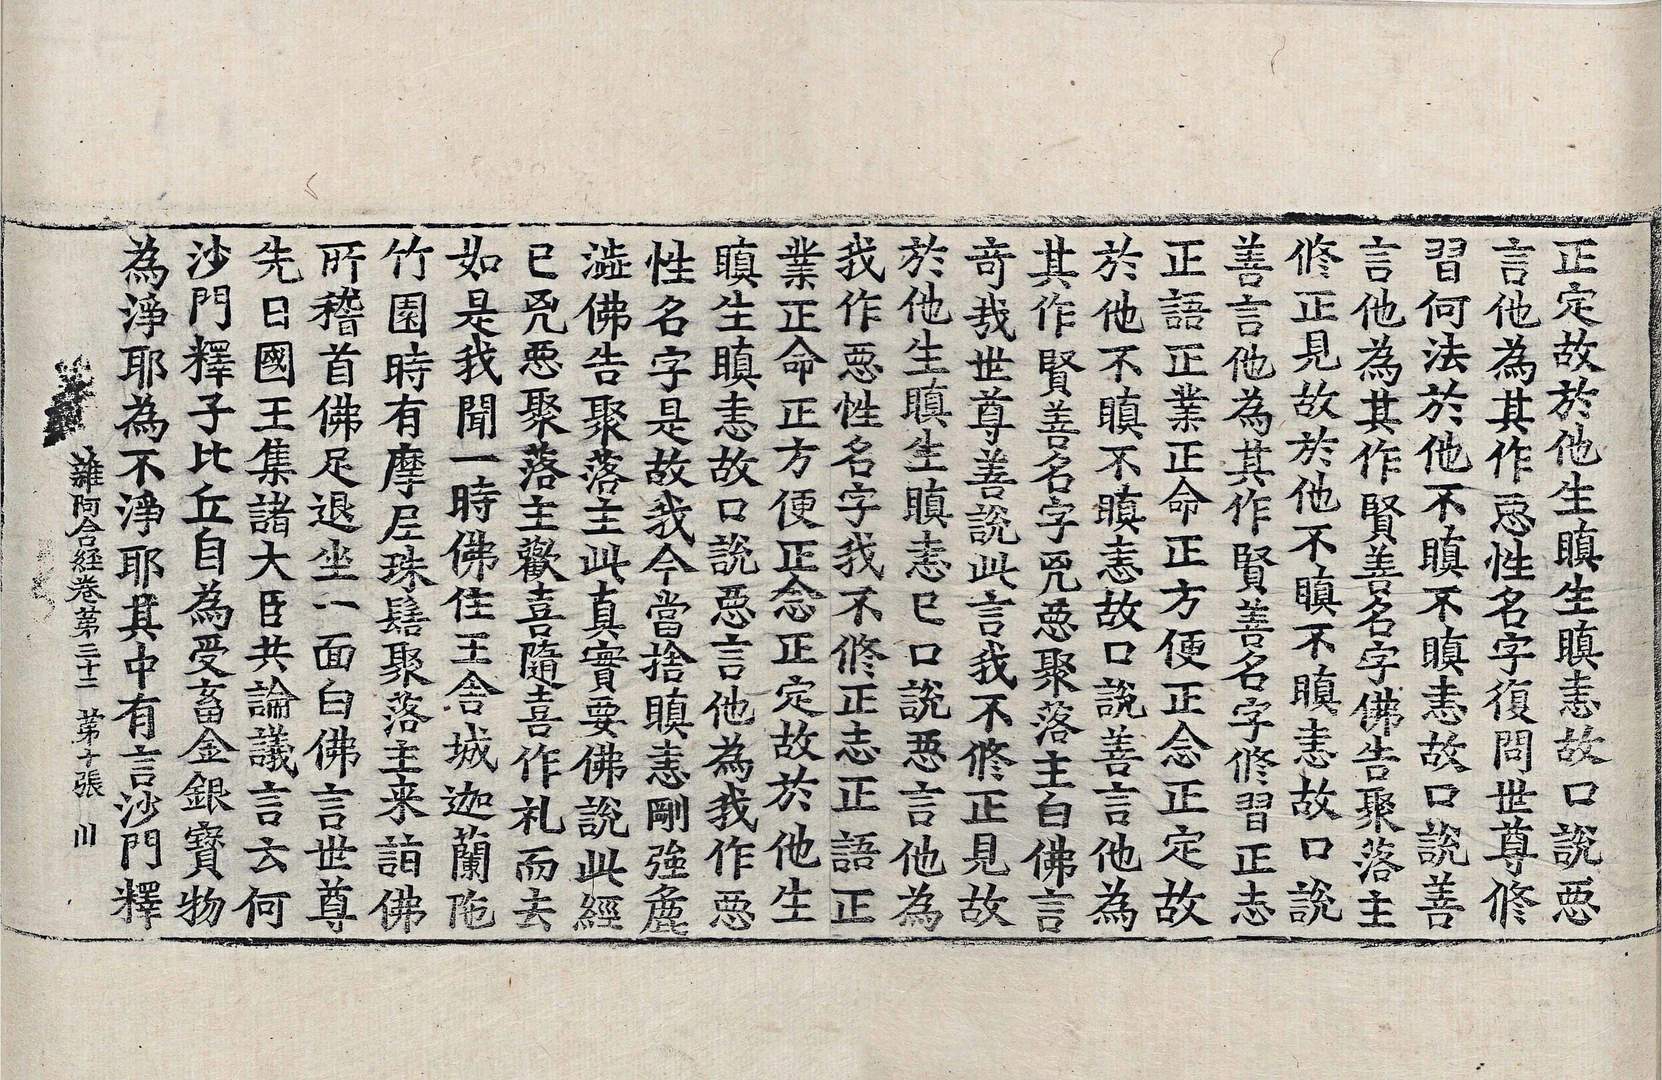 正定故於他生瞋生瞋恚故口說惡
言他為其作惡性名字復問世尊修
習何法於他不瞋不瞋恚故口說善
言他為其作賢善名字佛告聚落主
修正見故於他不瞋不瞋恚故口說
善言他為其作賢善名字修習正志
正語正業正命正方便正念正定故
於他不瞋不瞋恚故口說善言他為
其作賢善名字兇惡聚落主白佛言
奇哉世尊善說此言我不修正見故
於他生瞋生瞋恚已口說惡言他為
我作惡性名字我不修正志正語正
業正命正方便正念正定故於他生
瞋生瞋恚故口說惡言他為我作惡
性名字是故我今當捨瞋恚剛強麁
澁佛告聚落主此真實要佛說此經
已兇惡聚落主歡喜隨喜作礼而去
如是我聞一時佛住王舍城迦蘭陁
竹園時有摩尼珠髻聚落主来詣佛
所稽首佛足退坐一面白佛言世尊
先日國王集諸大臣共論議言云何
沙門釋子比丘自為受畜金銀寶物
為淨耶為不淨耶其中有言沙門釋
雜阿含経卷苐三十二 苐十張 川